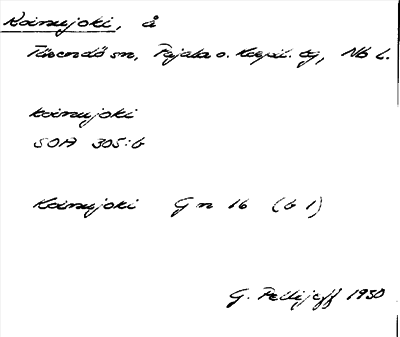 Koinujoki, å
Tärendö sn, Pajala o. Korpil. tg, Nb l.
koinujoki
SOA 305:6
Koinujoki Gn 16 (b 1)
G. Pellijeff 1950